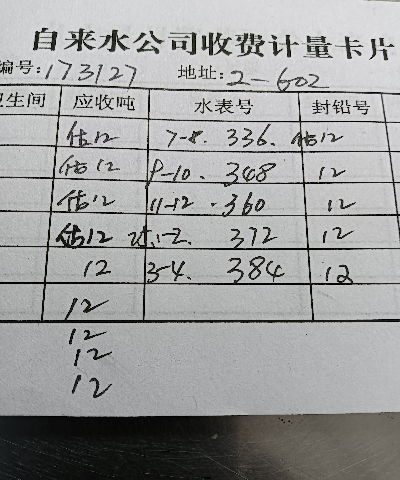 自来水公司收费计量卡片
编号:173127 地址:2-602
卫生间 应收吨 水表号 封铅号
估12 7-8. 336. 估12
估12 9-10. 348 12
估12 11-12. 360 12
估12 1-2. 372 12
12 3-4. 384 12
12
12
12
12